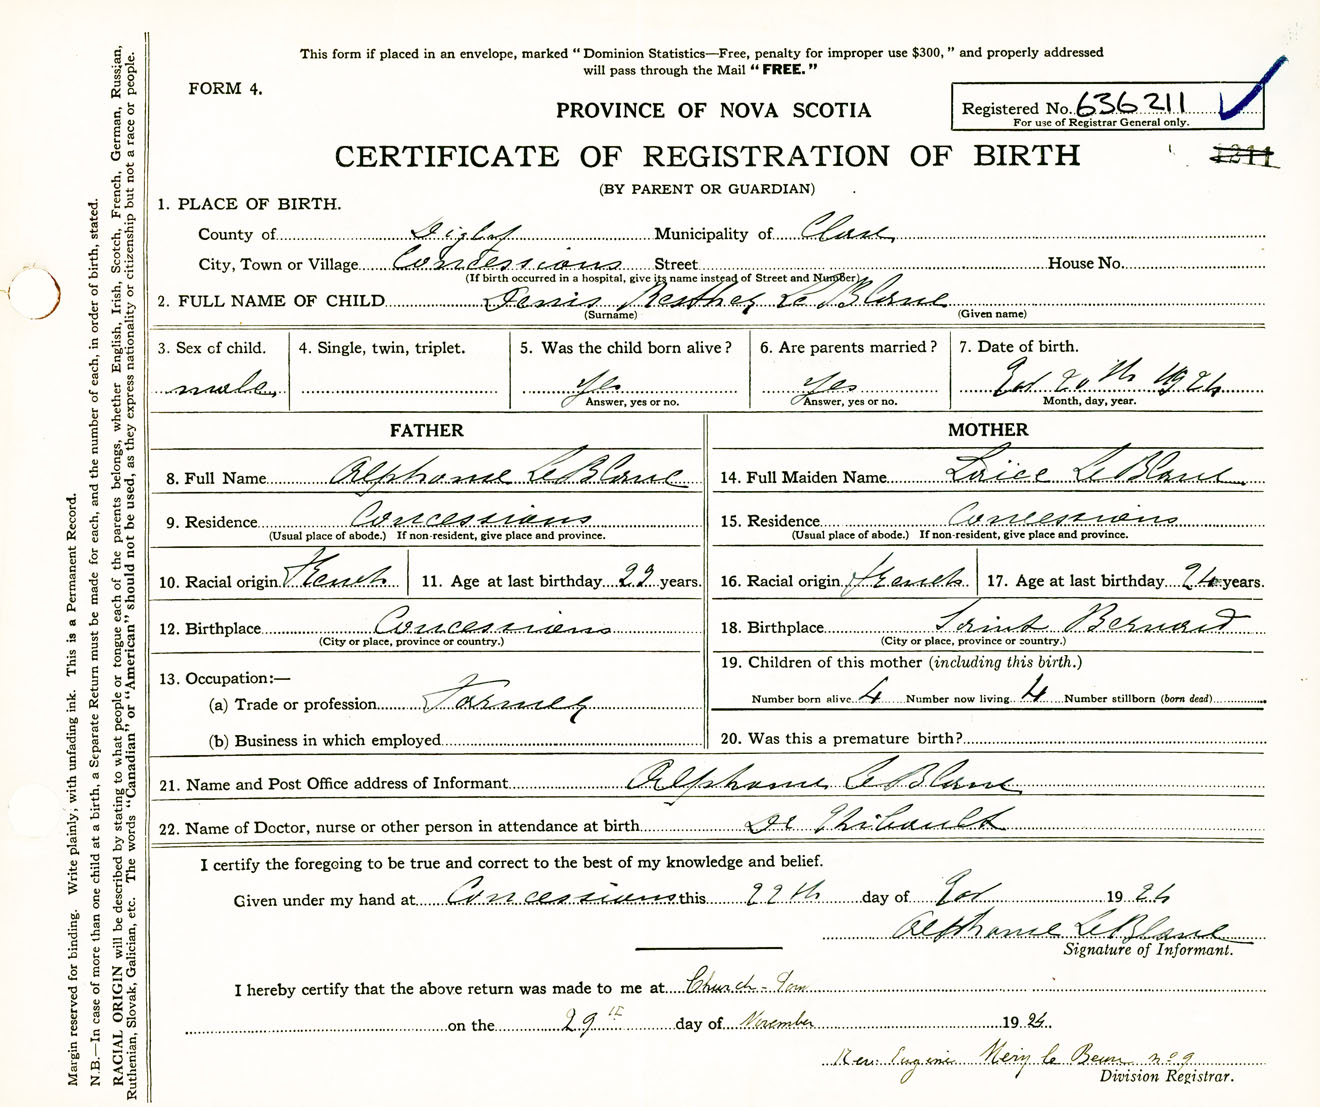 This form if placed in an envelope, marked "Dominion Statistics—Free, penalty for improper use $300," and properly addressed
will pass through the Mail "FREE."
FORM 4.
PROVINCE OF NOVA SCOTIA
Registered No. 636211
For use of Registrar General only.
CERTIFICATE OF REGISTRATION OF BIRTH
1211
(BY PARENT OR GUARDIAN)
1. PLACE OF BIRTH.
County of Digby Municipality of Clare
City, Town or Village Concessions Street House No.
(If birth occurred in a hospital, give its name instead of Street and Number)
2. FULL NAME OF CHILD Denis LeBlanc
(Surname) (Given name)
3. Sex of child. 4. Single, twin, triplet. 5. Was the child born alive? 6. Are parents married? 7. Date of birth.
male Yes Yes 20th 1924
Answer, yes or no. Answer, yes or no. Month, day, year.
FATHER MOTHER
8. Full Name Alphonse LeBlanc 14. Full Maiden Name LeBlanc
9. Residence Concessions 15. Residence Concessions
(Usual place of abode.) If non-resident, give place and province. (Usual place of abode.) If non-resident, give place and province.
10. Racial origin French 11. Age at last birthday years. 16. Racial origin French 17. Age at last birthday 24 years.
12. Birthplace Concessions 18. Birthplace Saint Bernard
(City or place, province or country.) (City or place, province or country.)
13. Occupation:— 19. Children of this mother (including this birth.)
(a) Trade or profession Farmer Number born alive 4 Number now living 4 Number stillborn (born dead)
(b) Business in which employed 20. Was this a premature birth?
21. Name and Post Office address of Informant Alphonse LeBlanc
22. Name of Doctor, nurse or other person in attendance at birth Dr Thibault
I certify the foregoing to be true and correct to the best of my knowledge and belief.
Given under my hand at Concessions this 22th day of 1924
Alphonse LeBlanc
Signature of Informant.
I hereby certify that the above return was made to me at Church-
on the 29th day of November 1924.
Rev. no 9
Division Registrar.
Margin reserved for binding. Write plainly, with unfading ink. This is a Permanent Record.
N.B.—In case of more than one child at a birth, a Separate Return must be made for each, and the number of each, in order of birth, stated.
RACIAL ORIGIN will be described by stating to what people or tongue each of the parents belongs, whether English, Irish, Scotch, French, German, Russian,
Ruthenian, Slovak, Galician, etc. The words "Canadian" or "American" should not be used, as they express nationality or citizenship but not a race or people.